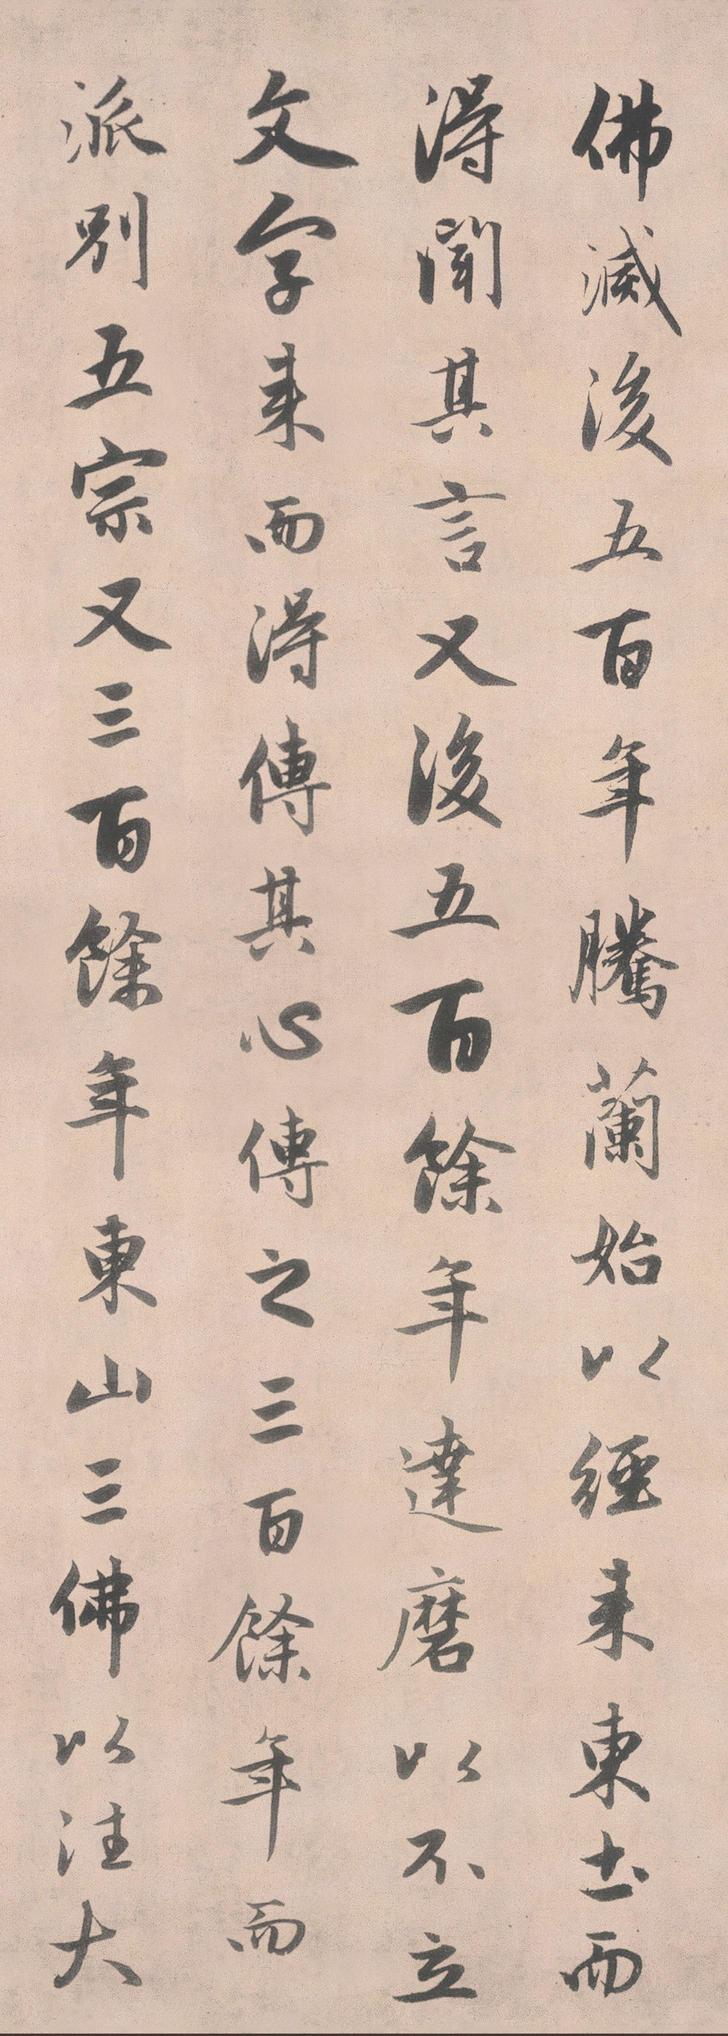 佛滅後五百年騰蘭始以經来東土而
得聞其言又後五百餘年達磨以不立
文字来而得傳其心傳之三百餘年而
派別五宗又三百餘年東山三佛以法大